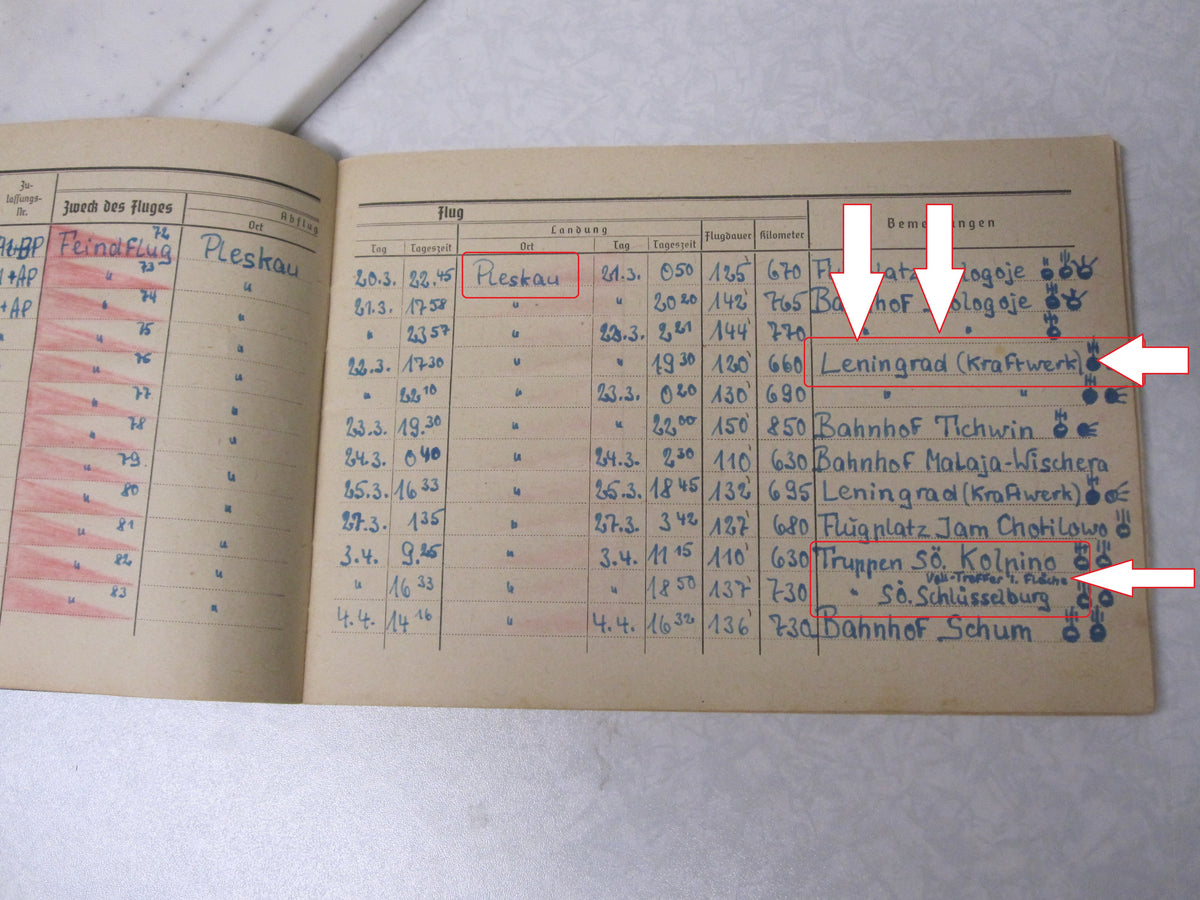 Zu-
lassungs-
Nr.
Zweck des Fluges
Abflug
Ort
Flug
Landung
Bemerkungen
Tag Tageszeit Ort Tag Tageszeit Flugdauer Kilometer
Feindflug 72 Pleskau 20.3. 22.45 Pleskau 21.3. 0 50 125' 670 ologoje
+AP " 73 " 21.3. 17 58 " " 20 20 142' 765 Bahnhof ologoje
+AP " 74 " " 23 57 " 22.3. 2 21 144' 770 " "
" 75 " 22.3. 17 30 " " 19 30 120' 660 Leningrad (Kraftwerk)
" 76 " " 22 10 " 23.3. 0 20 130' 690 " "
" 77 " 23.3. 19.30 " " 22 00 150' 850 Bahnhof Tichwin
" 78 " 24.3. 0 40 " 24.3. 2 30 110' 630 Bahnhof Malaja-Wischera
" 79. " 25.3. 16 33 " 25.3. 18 45 132' 695 Leningrad (Kraftwerk)
" 80 " 27.3. 1 35 " 27.3. 3 42 127' 680 Flugplatz Jam Chotilowo
" 81 " 3.4. 9.25 " 3.4. 11 15 110' 630 Truppen SÖ. Kolpino
Voll-Treffer i. Fläche
" 82 " " 16 33 " " 18 50 137' 730 " SÖ. Schlüsselburg
" 83 " 4.4. 14 16 " 4.4. 16 32 136' 730 Bahnhof Schum